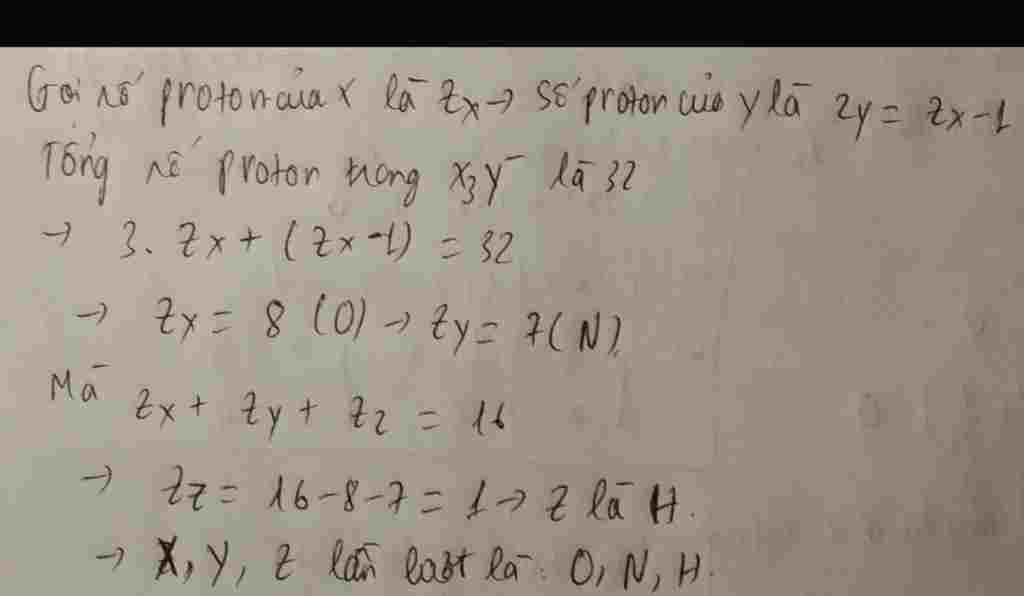 Gọi số proton của X là Zx → Số proton của Y là Zy = Zx-1
Tổng số proton trong X₃Y⁻ là 32
→ 3. Zx + (Zx-1) = 32
→ Zx = 8 (O) → Zy = 7(N).
Mà Zx + Zy + Zz = 16
→ Zz = 16-8-7 = 1 → Z là H.
→ X, Y, Z lần lượt là: O, N, H.